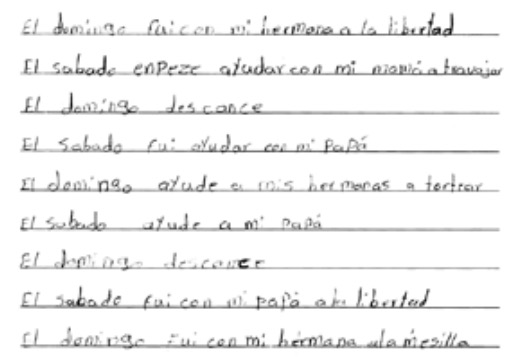 El domingo fui con mi hermana a la libertad
El sabado enpeze ayudar con mi mamá a travajar
El domingo descance
El sabado fui ayudar con mi papá
El domingo ayude a mis hermanas a tortear
El sabado ayude a mi papá
El domingo descance
El sabado fui con mi papá a la libertad
El domingo fui con mi hermana a la mesilla